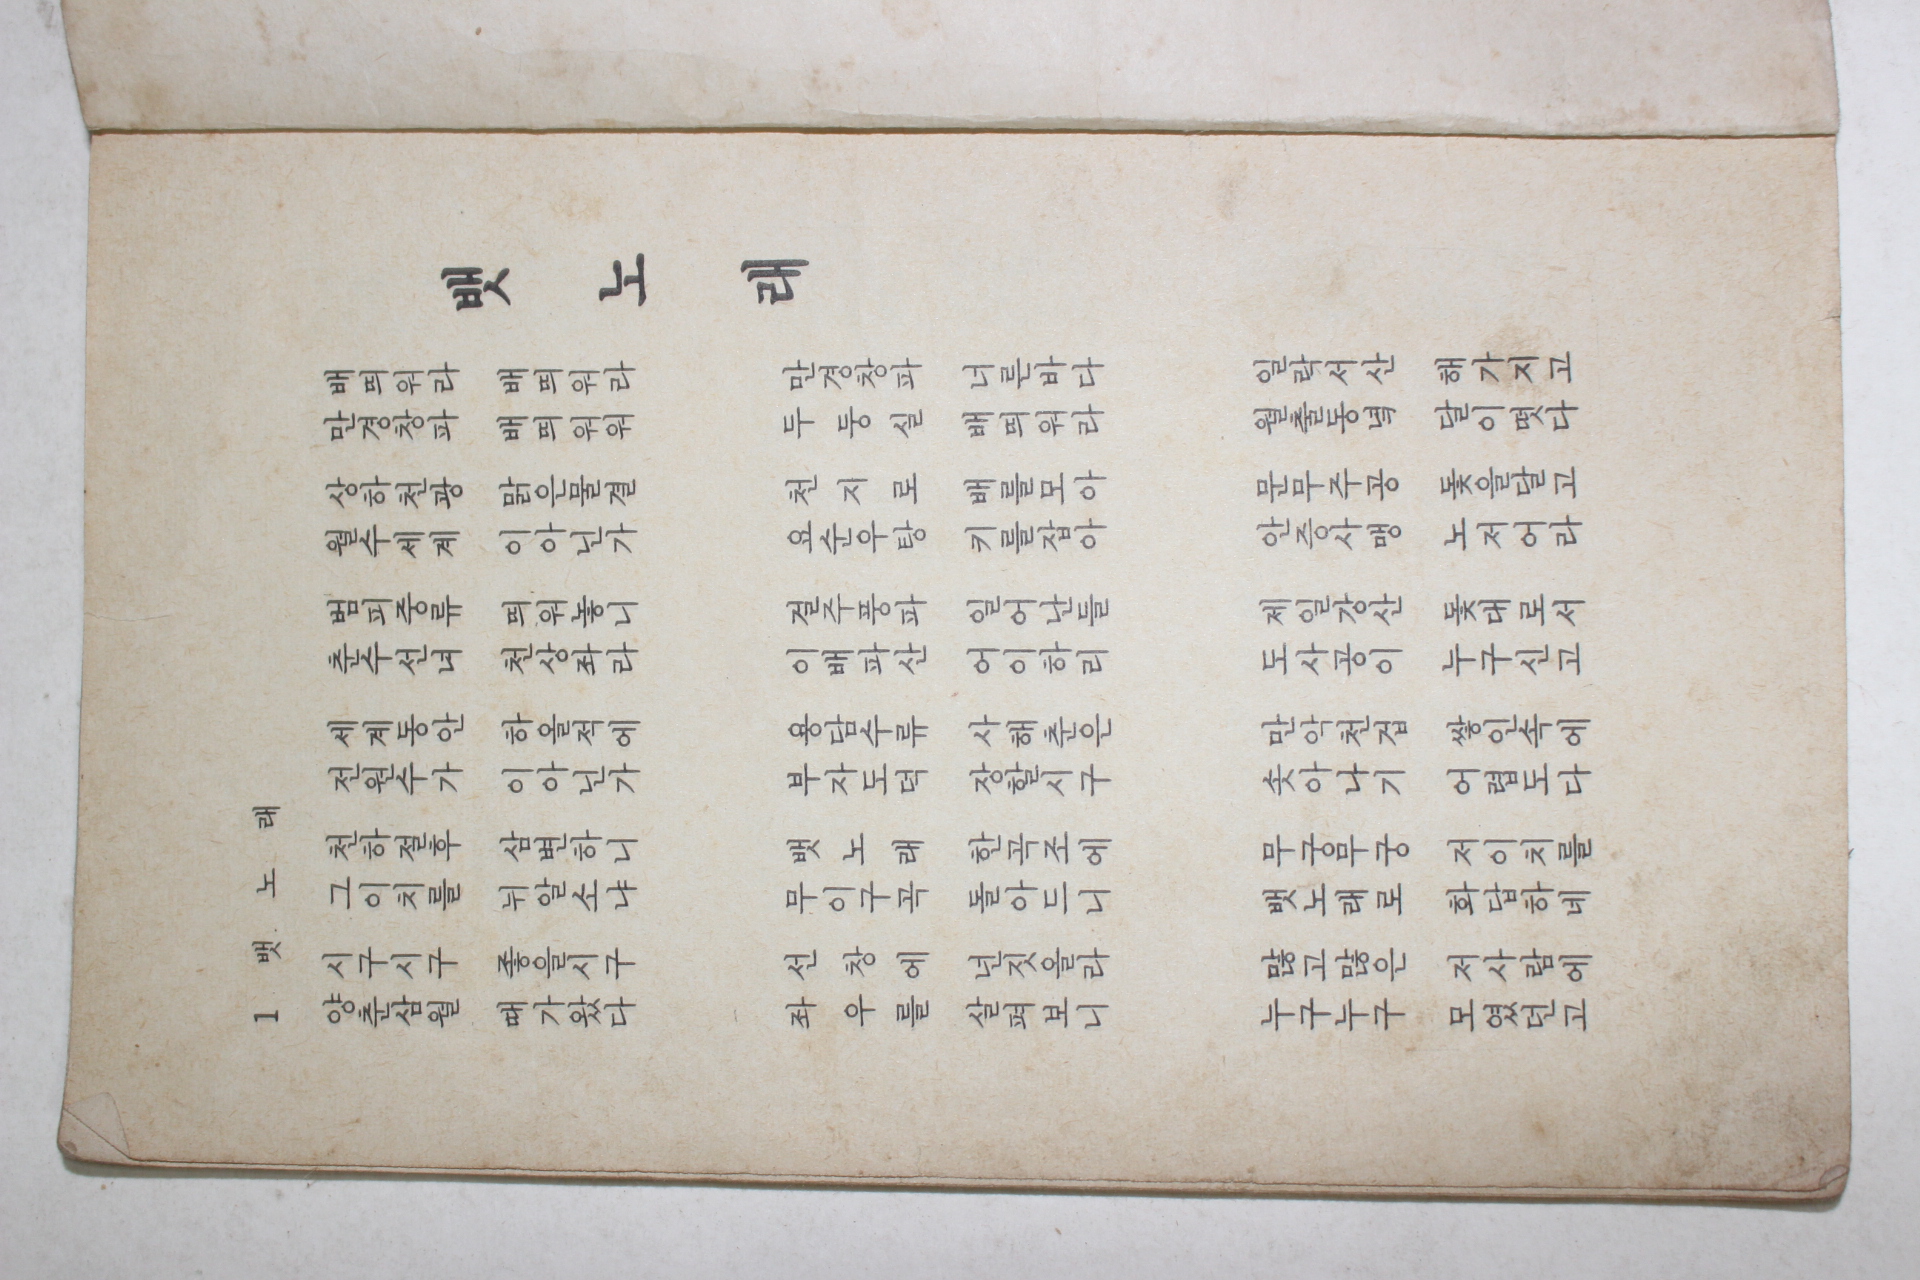 뱃노래
배띄워라 배띄워라
만경창파 배띄워워
만경창파 너른바다
두둥실 배띄워라
일락서산 해가지고
월출동녘 달이떳다
상하천광 맑은물결
월수세계 이아닌가
천지로 배를모아
요순우탕 키를잡아
문무주공 돛을달고
안증사맹 노저어라
범피중류 띄워놓니
춘수선녀 천상좌라
걸주풍파 일어난들
이배파산 어이하리
제일강산 돛대로서
도사공이 누구신고
세계동안 하올적에
전원수가 이아닌가
용담수류 사해춘은
부자도덕 장할시구
만악천겁 쌓인속에
솟아나기 어렵도다
천하절후 삼변하니
그이치를 뉘알소냐
뱃노래 한곡조에
무이구곡 돌아드니
무궁무궁 저이치를
뱃노래로 화답하네
시구시구 좋을시구
양춘삼월 때가왔다
선창에 넌짓올라
좌우를 살펴보니
많고많은 저사람에
누구누구 모였던고
1 뱃노래